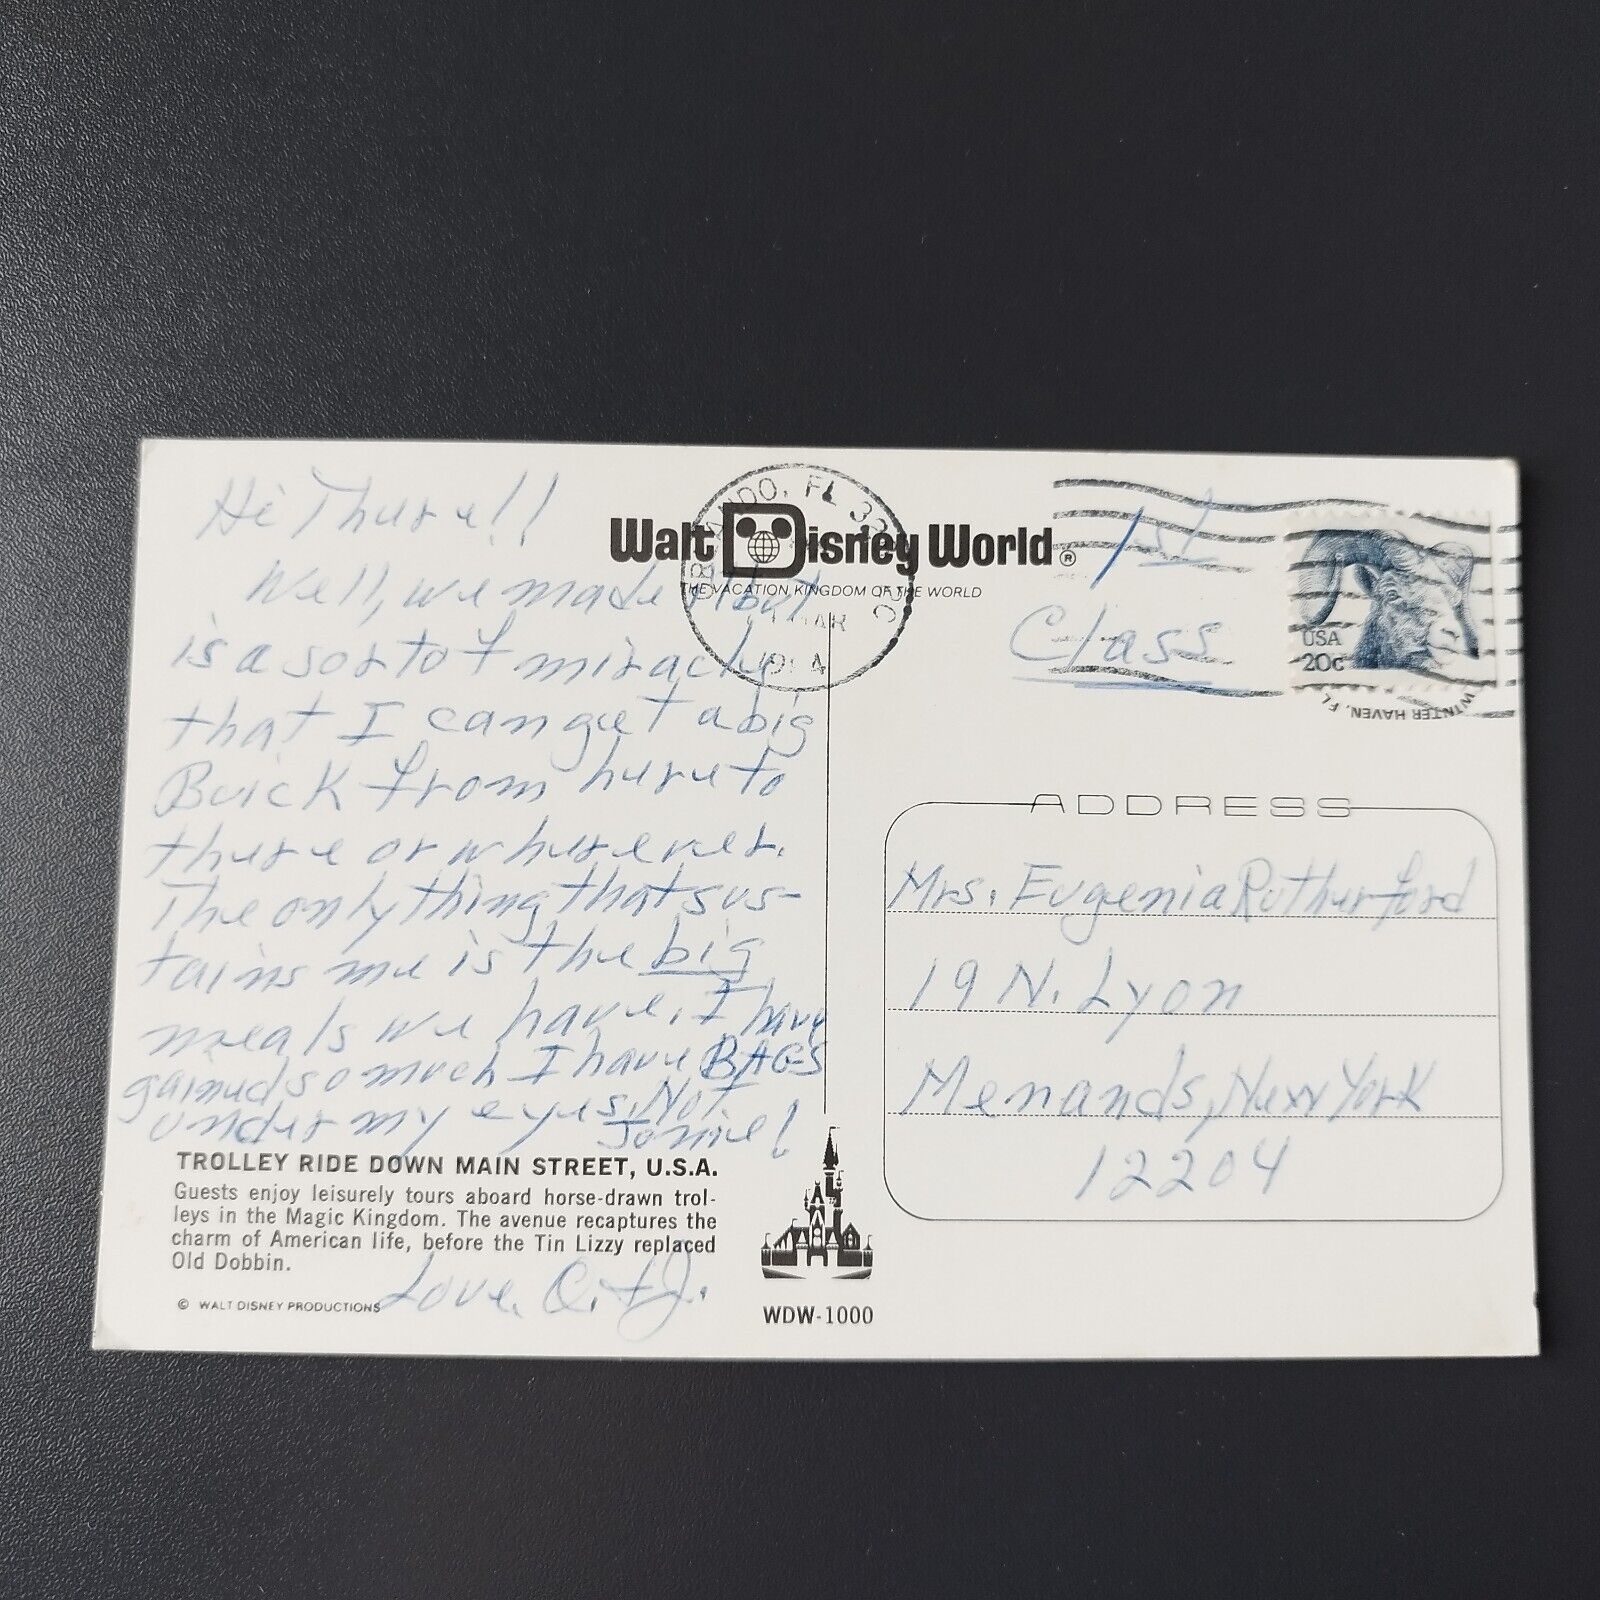 Hi There!!
Well, we made it but
is a sort of miracle
that I can get a big
Buick from here to
there or wherever.
The only thing that sus-
tains me is the big
meals we have. I have
gained so much I have BAGS
under my eyes. Not
Jomie!
TROLLEY RIDE DOWN MAIN STREET, U.S.A.
Guests enjoy leisurely tours aboard horse-drawn trol-
leys in the Magic Kingdom. The avenue recaptures the
charm of American life, before the Tin Lizzy replaced
Old Dobbin.
Love, C. + J.
© WALT DISNEY PRODUCTIONS
Walt Disney World®
THE VACATION KINGDOM OF THE WORLD
ORLANDO, FL
MAR
1984
1st
Class
USA
20c
WINTER HAVEN, FL
ADDRESS
Mrs. Eugenia Rutherford
19 N. Lyon
Menands, New York
12204
WDW-1000